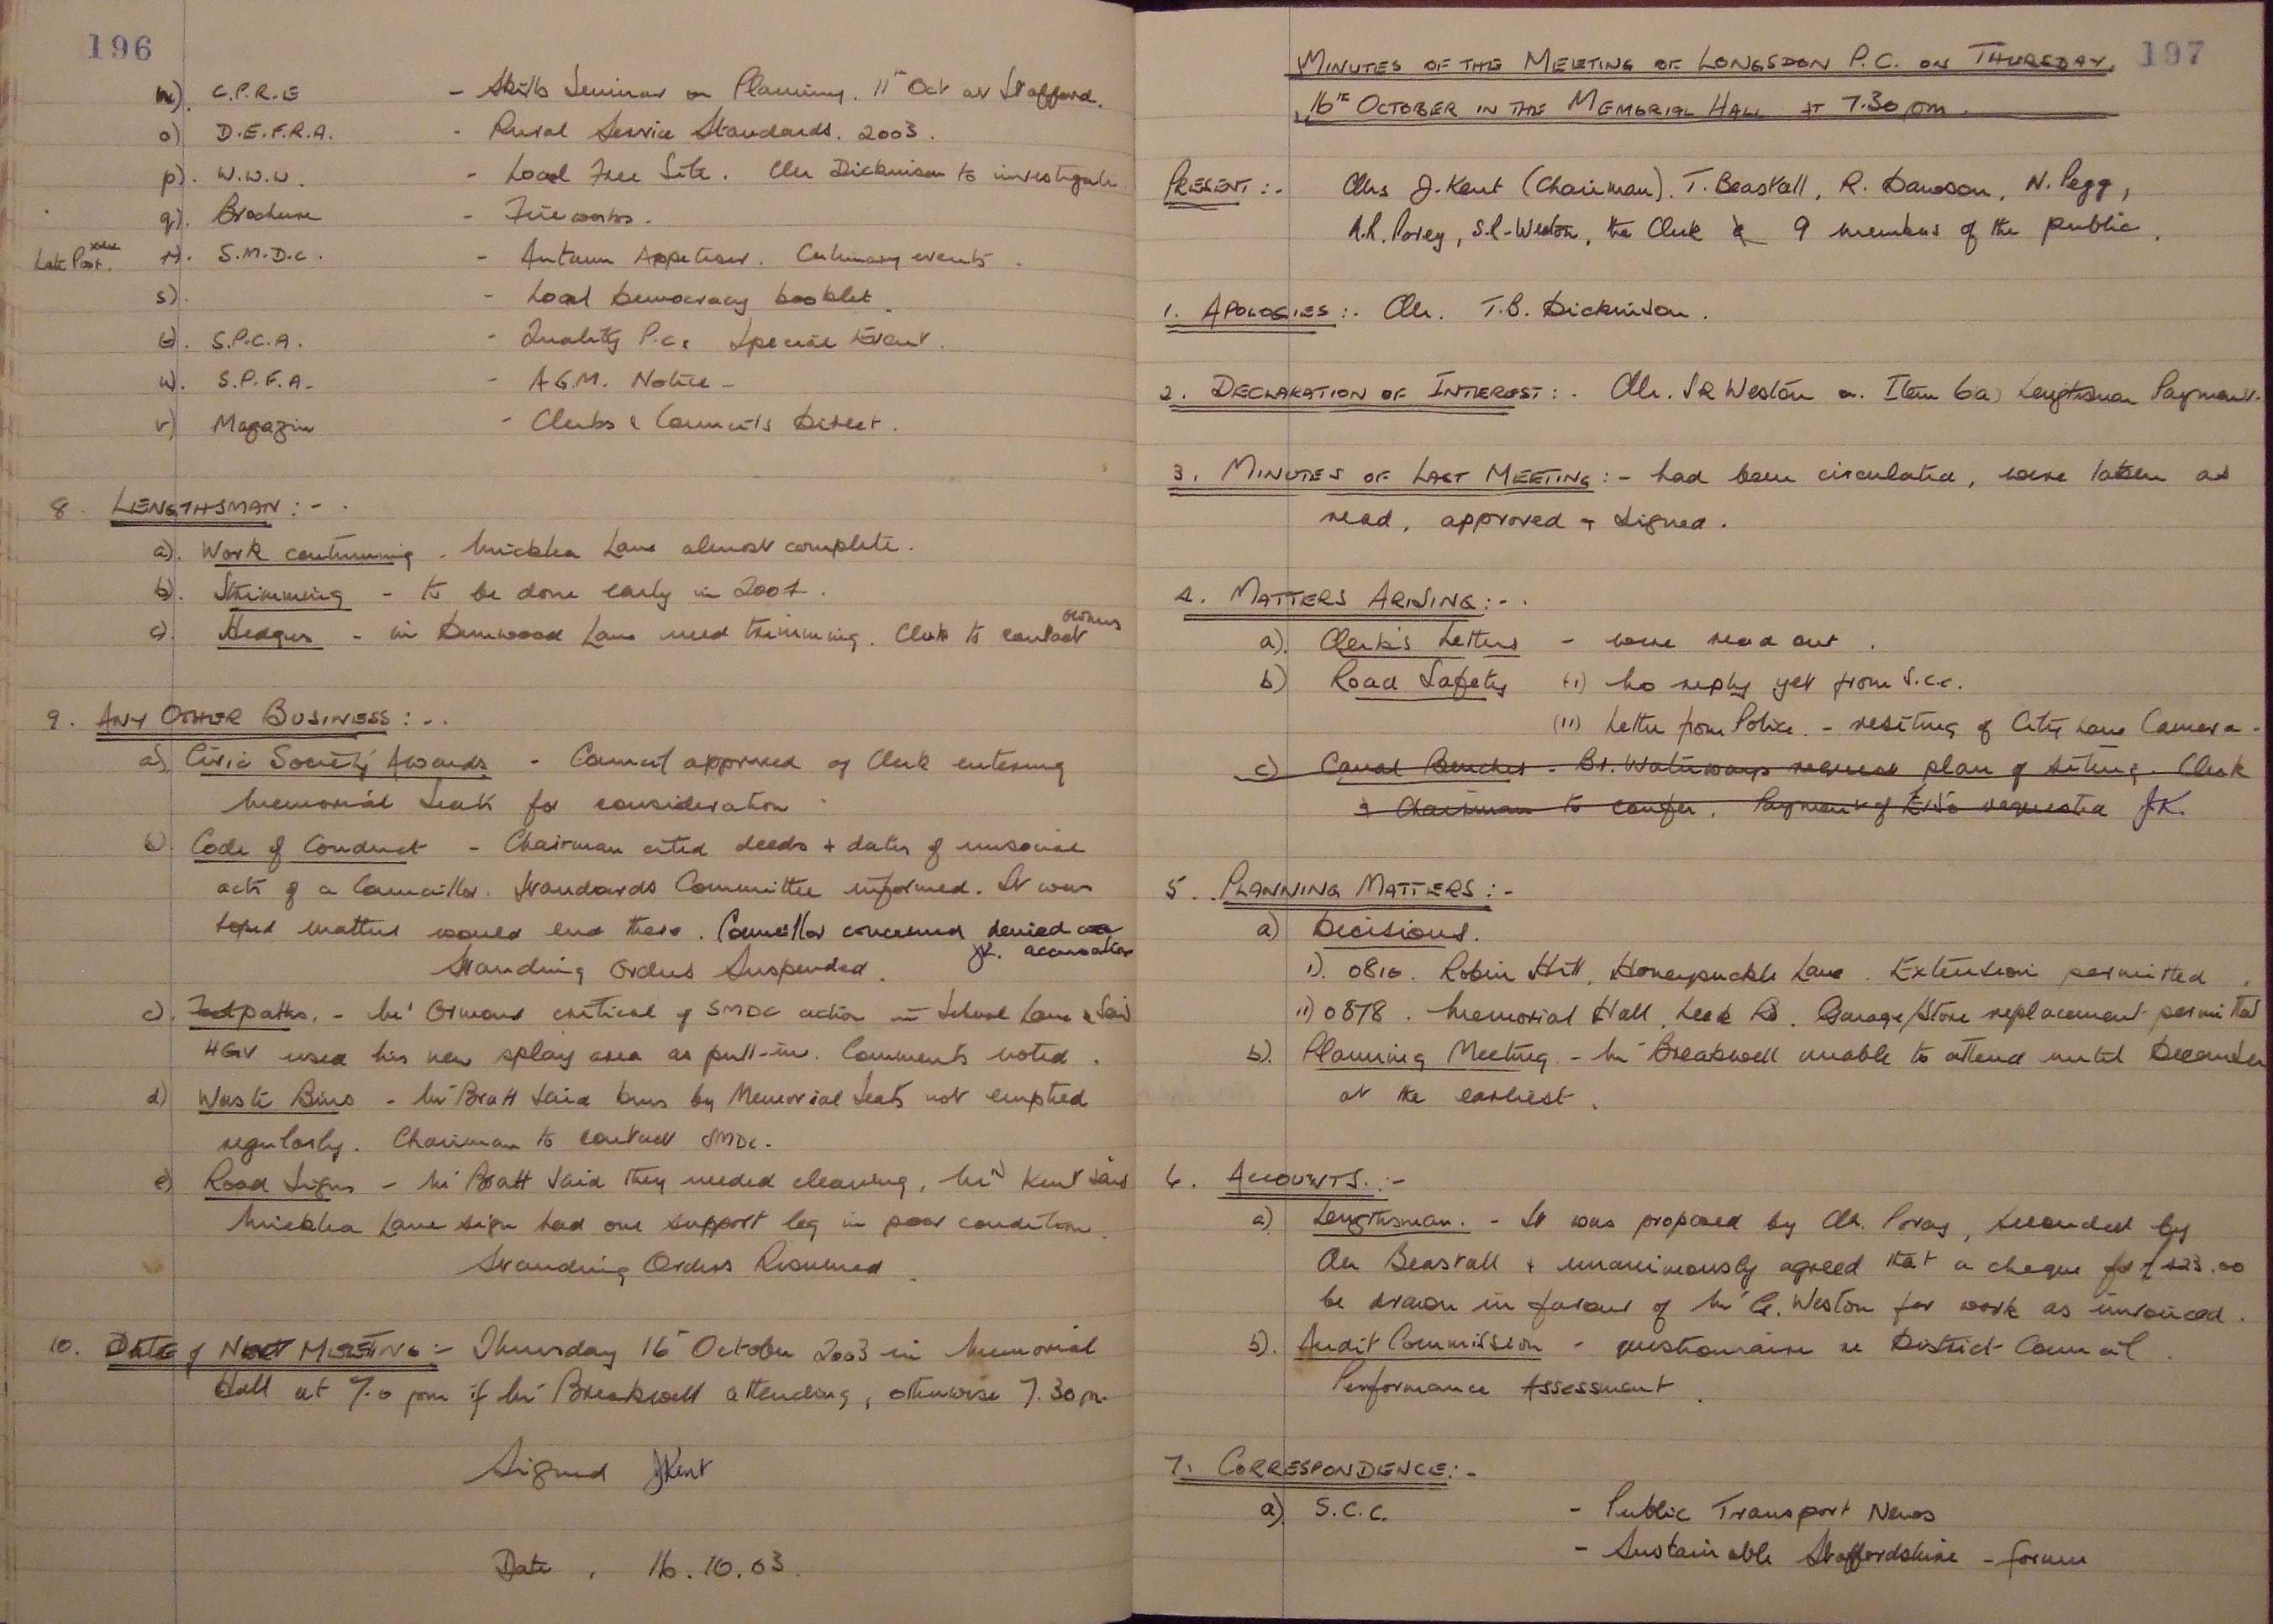 196
n). C.P.R.E - Skills Seminar on Planning. 11th Oct at Stafford.
o) D.E.F.R.A. - Rural Service Standards. 2003.
p). W.W.W. - Local Free Site. Cllr Dickinson to investigate
q). Brochure - Fireworks.
Late Post. r). S.M.D.C. - Autumn Appetiser. Culinary events.
s). - Local Democracy booklet.
t). S.P.C.A. - Quality P.C. Special Event.
u). S.P.F.A. - A.G.M. Notice -
v) Magazine - Clerks & Councils Direct.
8. LENGTHSMAN :-
a). Work continuing - Micklea Lane almost complete.
b). Strimming - to be done early in 2004.
c). Hedges - in Denwood Lane need trimming. Clerk to contact owners
9. ANY OTHER BUSINESS :-
a). Civic Society Awards - Council approved of Clerk entering
Memorial Seats for consideration.
b). Code of Conduct - Chairman cited deeds + dates of
acts of a Councillor. Standards Committee informed. It was
hoped matters would end there. Councillor concerned denied accusation
JK.
Standing Orders Suspended.
c). Footpaths. - Mr Ormond critical of SMDC action in School Lane & said
HGV used his new splay area as pull-in. Comments noted.
d) Waste Bins - Mr Bratt said bins by Memorial Seats not emptied
regularly. Chairman to contact SMDC.
e) Road Signs - Mr Bratt said they needed cleaning, Mr N Kent said
Micklea Lane sign had one support leg in poor condition.
Standing Orders Resumed.
10. Date of Next MEETING :- Thursday 16th October 2003 in Memorial
Hall at 7.0 pm if Mr Breakwell attending, otherwise 7.30pm.
Signed JKent
Date . 16.10.03.
197
MINUTES OF THE MEETING OF LONGSDON P.C. ON THURSDAY,
16TH OCTOBER IN THE MEMORIAL HALL AT 7.30pm.
PRESENT :- Cllrs J. Kent (Chairman). T. Beastall, R. Dawson, N. Pegg,
A.R. Povey, S.R. Weston, the Clerk & 9 members of the public.
1. APOLOGIES :- Cllr. T.B. Dickinson.
2. DECLARATION OF INTEREST :- Cllr. SR Weston on Item 6(a) Lengthsman Payment.
3. MINUTES OF LAST MEETING :- had been circulated, were taken as
read, approved + signed.
4. MATTERS ARISING :-
a). Clerk's Letters - were read out.
b) Road Safety (i) No reply yet from S.C.C.
(ii) Letter from Police. - resiting of City Lane Camera -
c) Canal Benches - Br. Waterways request plan of siting. Clerk
+ Chairman to confer. Payment of requested JK.
5. PLANNING MATTERS :-
a) Decisions.
i). 0816. Robin Hill, Honeysuckle Lane. Extension permitted.
ii) 0878. Memorial Hall, Leek Rd. Garage/Store replacement permitted
b). Planning Meeting - Mr Breakwell unable to attend until December
at the earliest.
6. ACCOUNTS. :-
a) Lengthsman. - It was proposed by Cllr. Povey, seconded by
Cllr Beastall + unanimously agreed that a cheque for £423.00
be drawn in favour of Mr G. Weston for work as invoiced.
b). Audit Commission - questionnaire re District Council
Performance Assessment.
7. CORRESPONDENCE :-
a). S.C.C. - Public Transport News
- Sustainable Staffordshire - forum